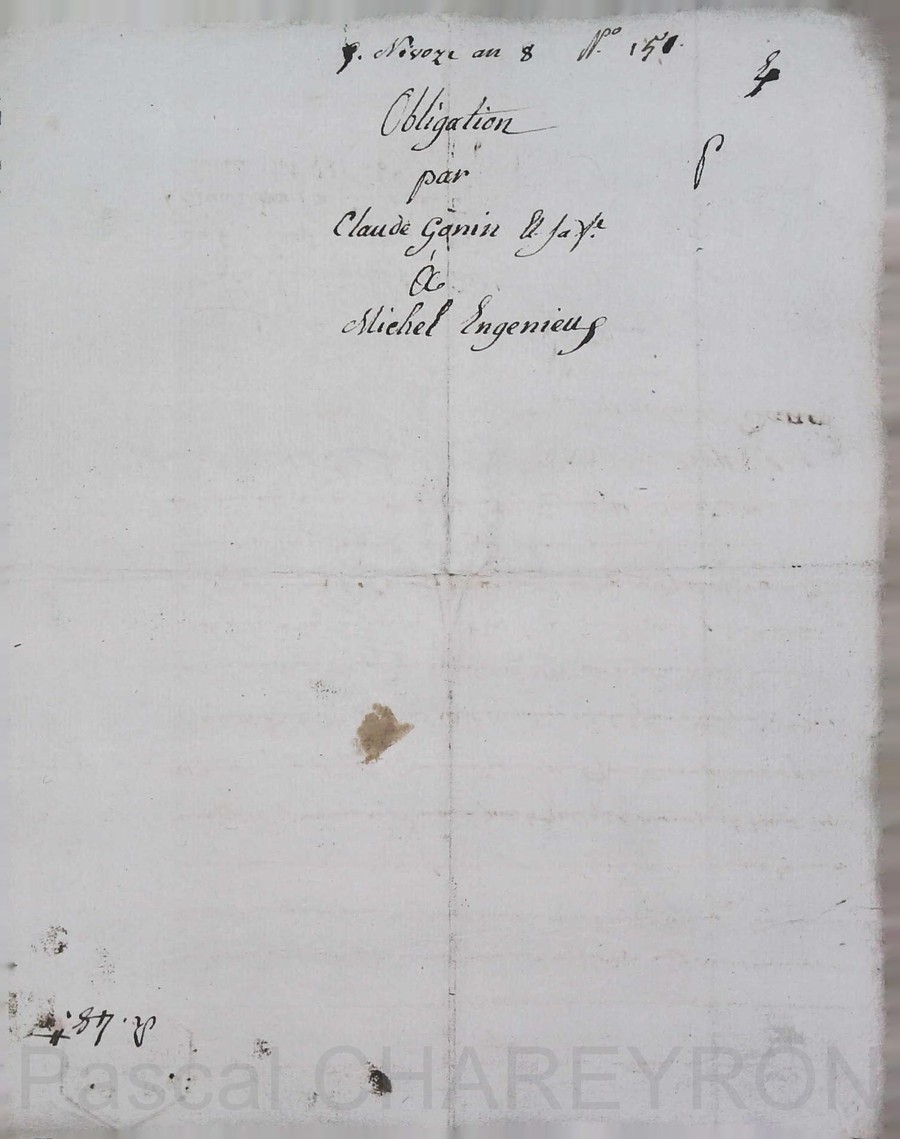 9. Nivoze an 8 N.º 151.
Obligation
par
Claude Gonin & sa f.e
à
Michel Engenieux
R. 48.
Pascal CHAREYRON